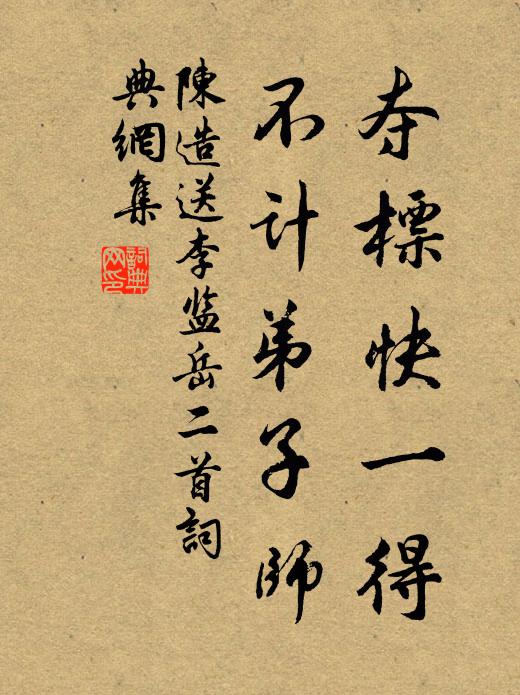 夺標快一得
不计弟子師
陳造送李监岳二首詞
典網集
詞典
网印